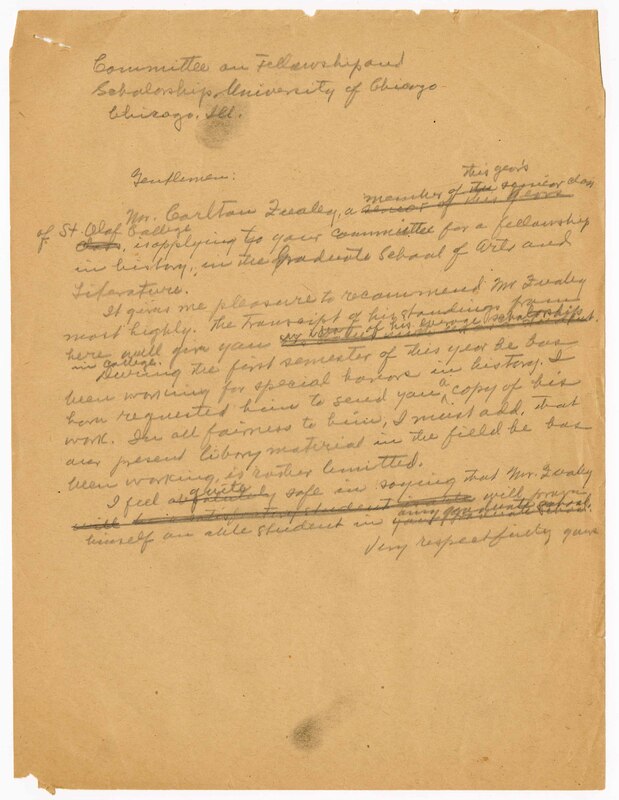 Committee on Fellowship and
Scholarship, University of Chicago
Chicago, Ill.
Gentlemen:
this year's
member of the senior class
Mr. Carlton Qualey, a senior of this years
of St Olaf College
class, is applying to your committee for a fellowship
in history, in the Graduate School of Arts and
Literature.
It gives me pleasure to recommend Mr Qualey
most highly. The transcipt of his standings from
here will give you of his scholarship
in college.
During the first semester of this year he has
been working for special honors in history. I
have requested him to send you a copy of his
work. In all fairness to him, I must add, that
our present library material in the field he has
been working, is rather limitted.
I feel quite safe in saying that Mr. Qualey
will be a student will prove
himself an able student in any graduate school.
Very respectfully yours